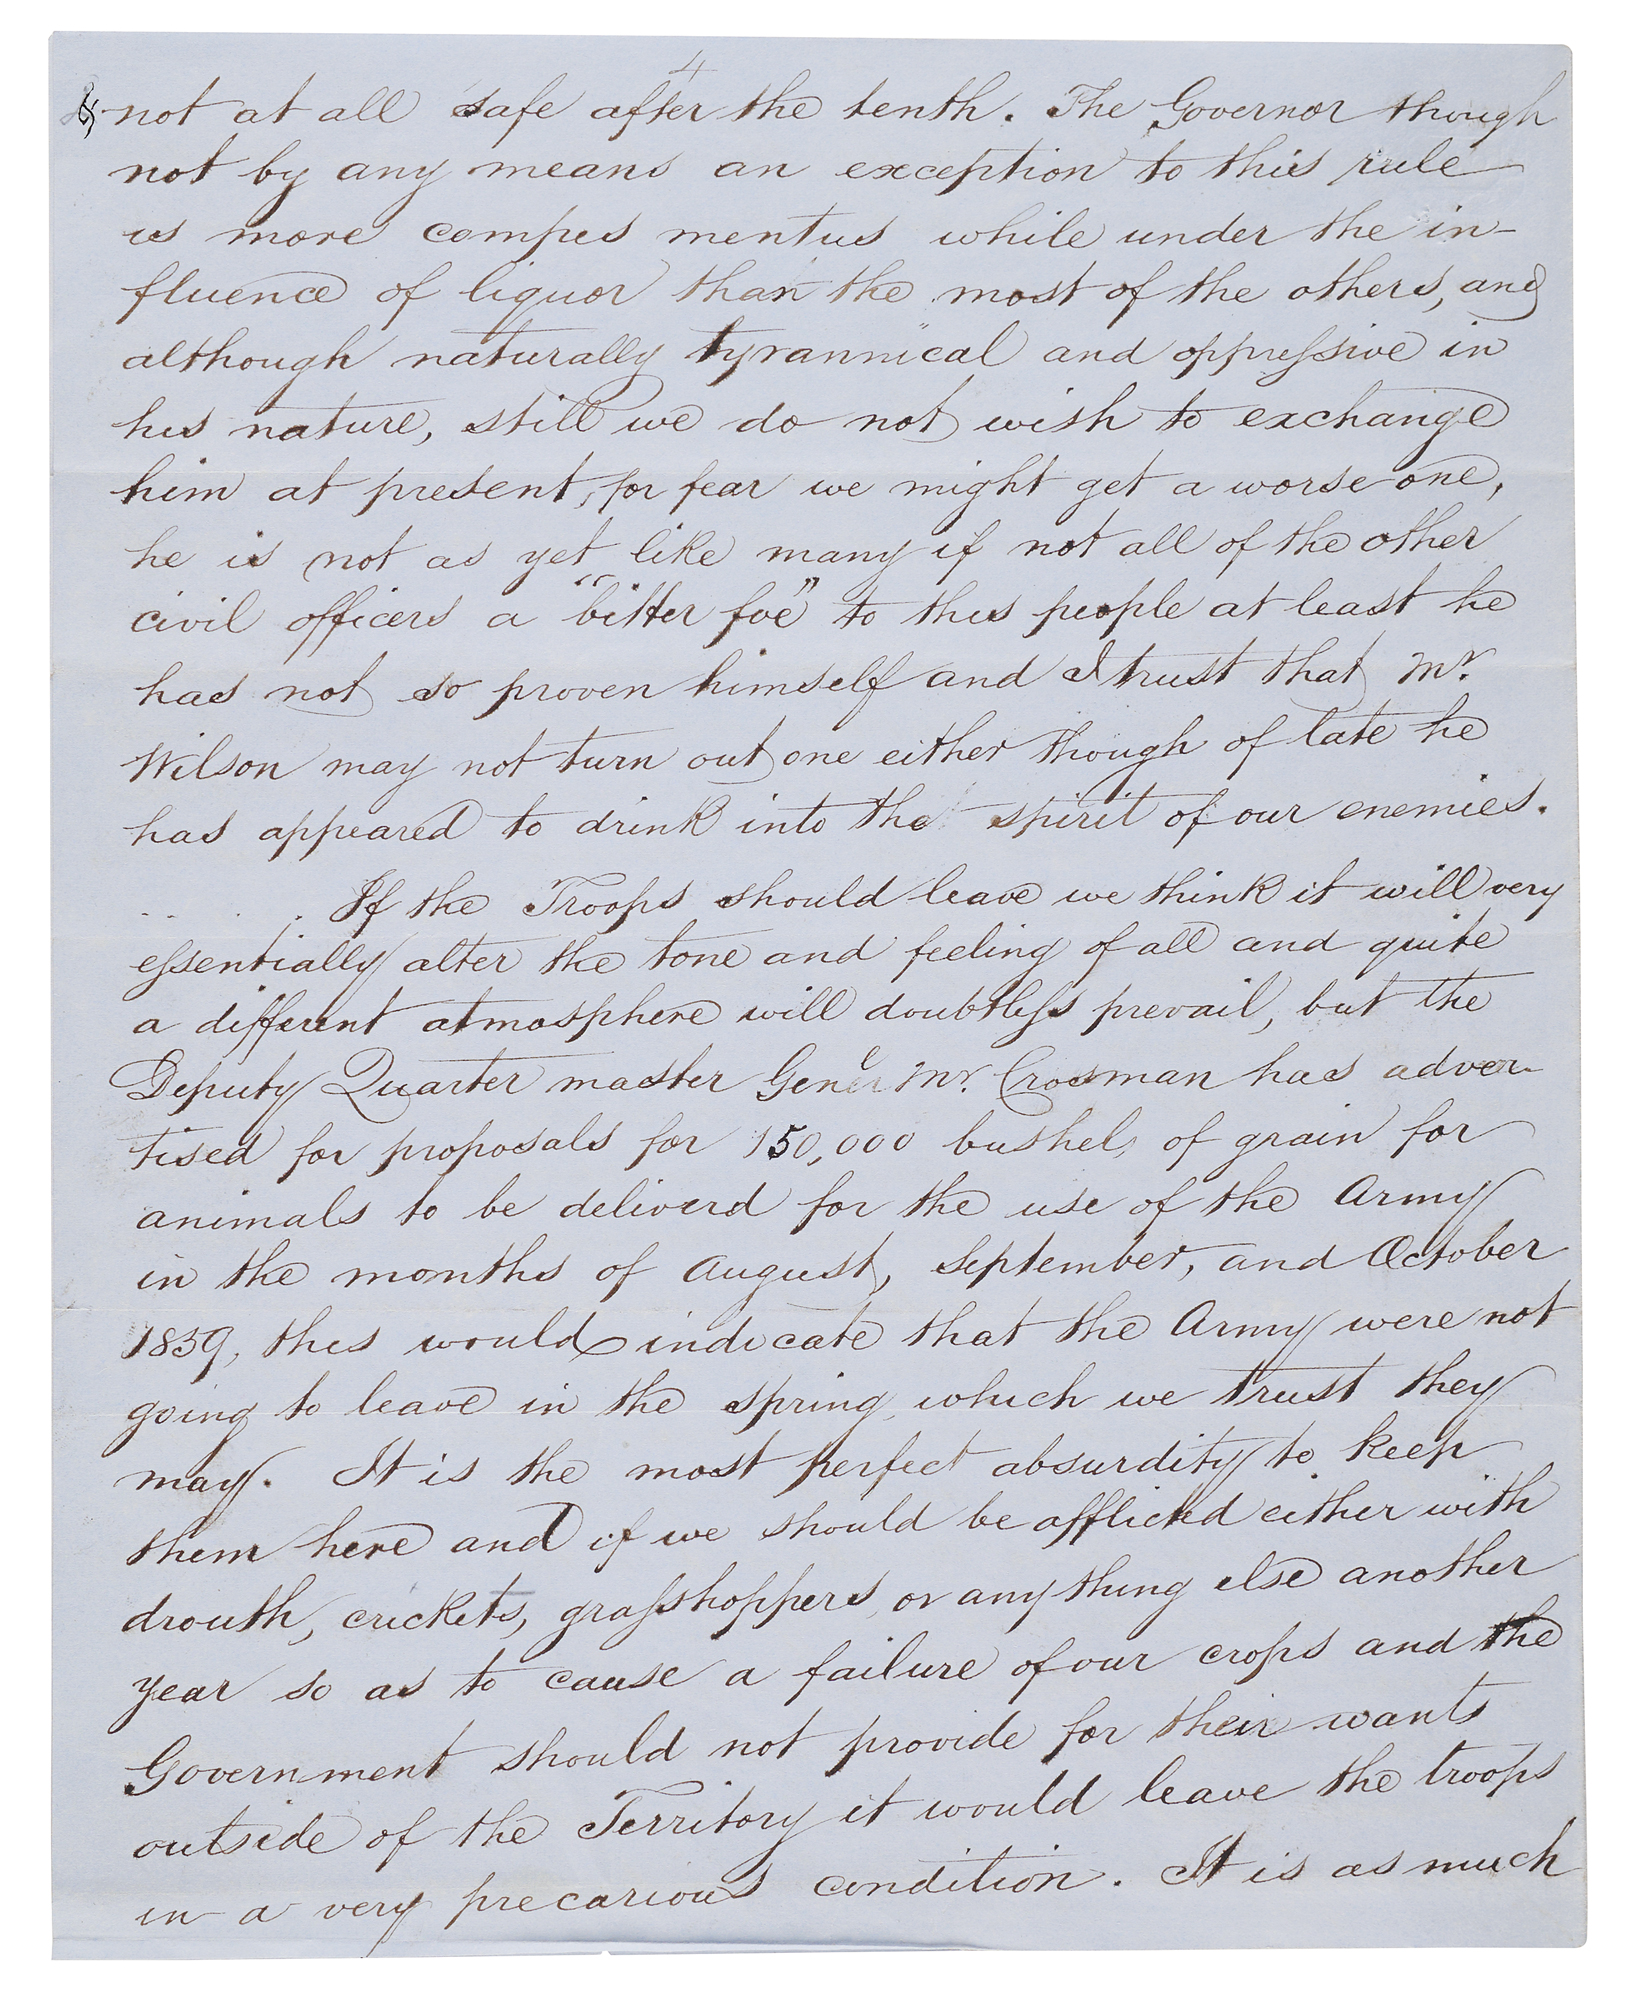 4
& not at all safe after the tenth. The Governor though
not by any means an exception to this rule
is more compes mentus while under the in-
fluence of liquor than the most of the others, and
although naturally tyrannical and oppressive in
his nature, still we do not wish to exchange
him at present, for fear we might get a worse one,
he is not as yet like many if not all of the other
civil officers a "bitter foe" to this people at least he
has not so proven himself and I trust that Mr.
Wilson may not turn out one either though of late he
has appeared to drink into the spirit of our enemies.
If the Troops should leave we think it will very
essentially alter the tone and feeling of all and quite
a different atmosphere will doubtless prevail, but the
Deputy Quarter master Genel Mr. Crosman has adver-
tised for proposals for 150,000 bushels of grain for
animals to be deliverd for the use of the Army
in the months of August, September, and October
1859, this would indicate that the Army were not
going to leave in the spring, which we trust they
may. It is the most perfect absurdity to keep
them here and if we should be afflicted either with
drouth, crickets, grasshoppers, or any thing else another
year so as to cause a failure of our crops and the
Government should not provide for their wants
outside of the Territory it would leave the troops
in a very precarious condition. It is as much